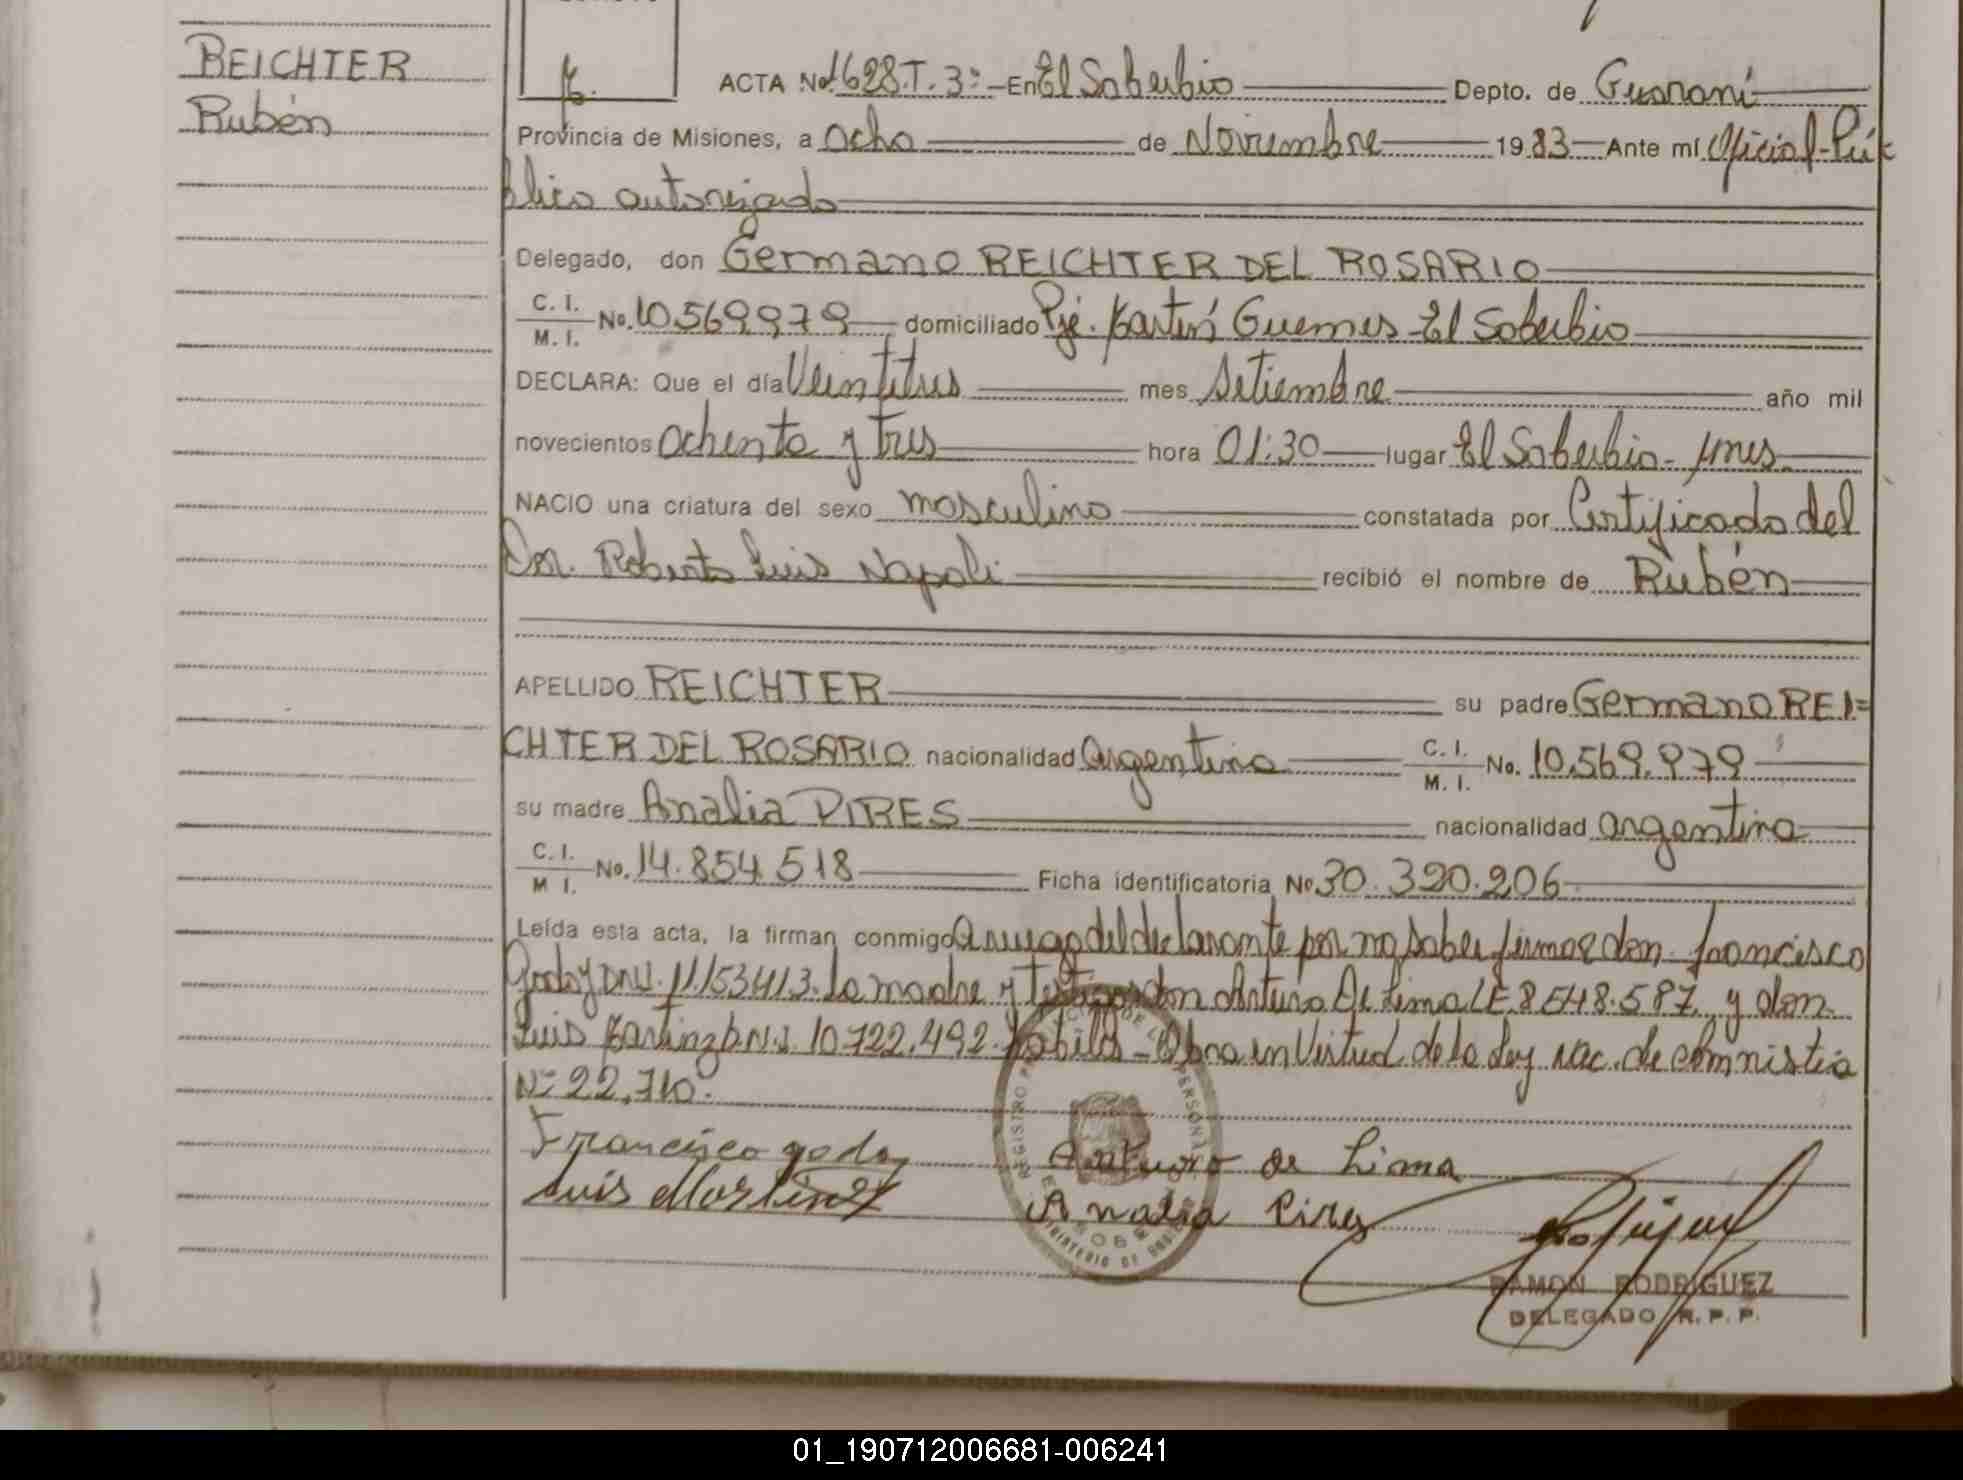 REICHTER
Rubén
ACTA No. 1628.T.3º En El Soberbio Depto. de Guaraní
Provincia de Misiones, a Ocho de Noviembre 1983 Ante mí Oficial Pú
blico autorizado
Delegado, don Germano REICHTER DEL ROSARIO
C. I.
M. I. No. 10.569.979 domiciliado Pje. Martín Guemes - El Soberbio
DECLARA: Que el día Veintitres mes Setiembre año mil
novecientos ochenta y tres hora 01:30 lugar El Soberbio - Mnes.
NACIO una criatura del sexo masculino constatada por Certificado del
Dr. Roberto Luis Napoli recibió el nombre de Rubén
APELLIDO REICHTER su padre Germano REI=
CHTER DEL ROSARIO nacionalidad argentina C. I. M. I. No. 10.569.979
su madre Analia PIRES nacionalidad argentina
C. I. M I. No. 14.854.518 Ficha identificatoria No 30.390.206
Leída esta acta, la firman conmigo A ruego del declarante por no saber firmar don Francisco
Godoy DNI. 11.153413. la madre y Testigos don Arturo De Lima LE 8548.587 y don
Luis Martinez D.N.I. 10722.492. Habiles - Obra en Virtud de la Ley Nac. de Amnistia
Nº 22.710.
Francisco godoy Arturo de Lima
Luis Martinez Analia Pires
RAMON RODRIGUEZ
DELEGADO R. P. P.
01_190712006681-006241